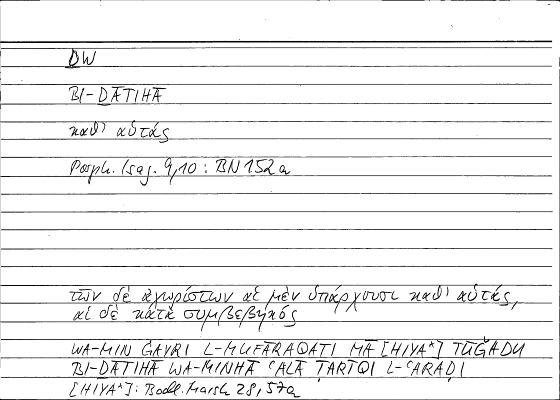 ḎW
BI-ḎĀTIHĀ
καθ' αὑτάς
Porph. Isag. 9,10 : BN 152a
τῶν δὲ ἀχωρίστων αἱ μὲν ὑπάρχουσι καθ' αὑτάς,
αἱ δὲ κατὰ συμβεβηκός
WA-MIN ĠAYRI L-MUFĀRAQATI MĀ [HIYA*] TŪǦADU
BI-ḎĀTIHĀ WA-MINHĀ ʿALĀ ṬARĪQI L-ʿARAḌI
[HIYA*]: Bodl. Marsh 28, 57a